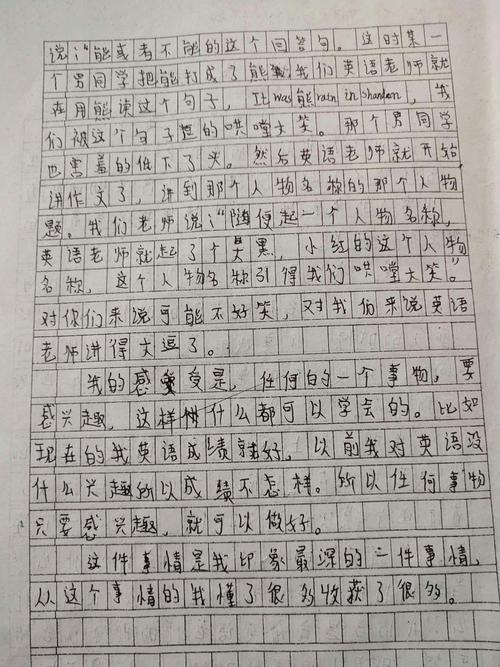 说："能或者不能的这个回答句。这时某一
个男同学把能打成了熊，我们英语老师就
在用熊读这个句子，It was熊rain in shandon，我
们被这个句子逗的哄嘡大笑。那个男同学
也害羞的低下了头。然后英语老师就开始
讲作文了，讲到那个人物名称的那个人物
题。我们老师说："随便起一个人物名称，
英语老师就起了个昊黑，小红的这个人物
名称，这个人物名称引得我们哄嘡大笑。"
对你们来说可能不好笑，对我们来说英语
老师讲得太逗了。
我的感受是，任何的一个事物，要
感兴趣，这样什么都可以学会的。比如
现在的我英语成绩就好，以前我对英语没
什么兴趣所以成绩不怎样。所以任何事物
只要感兴趣，就可以做好。
这件事情是我印象最深的一件事情，
从这个事情的我懂了很多收获了很多。